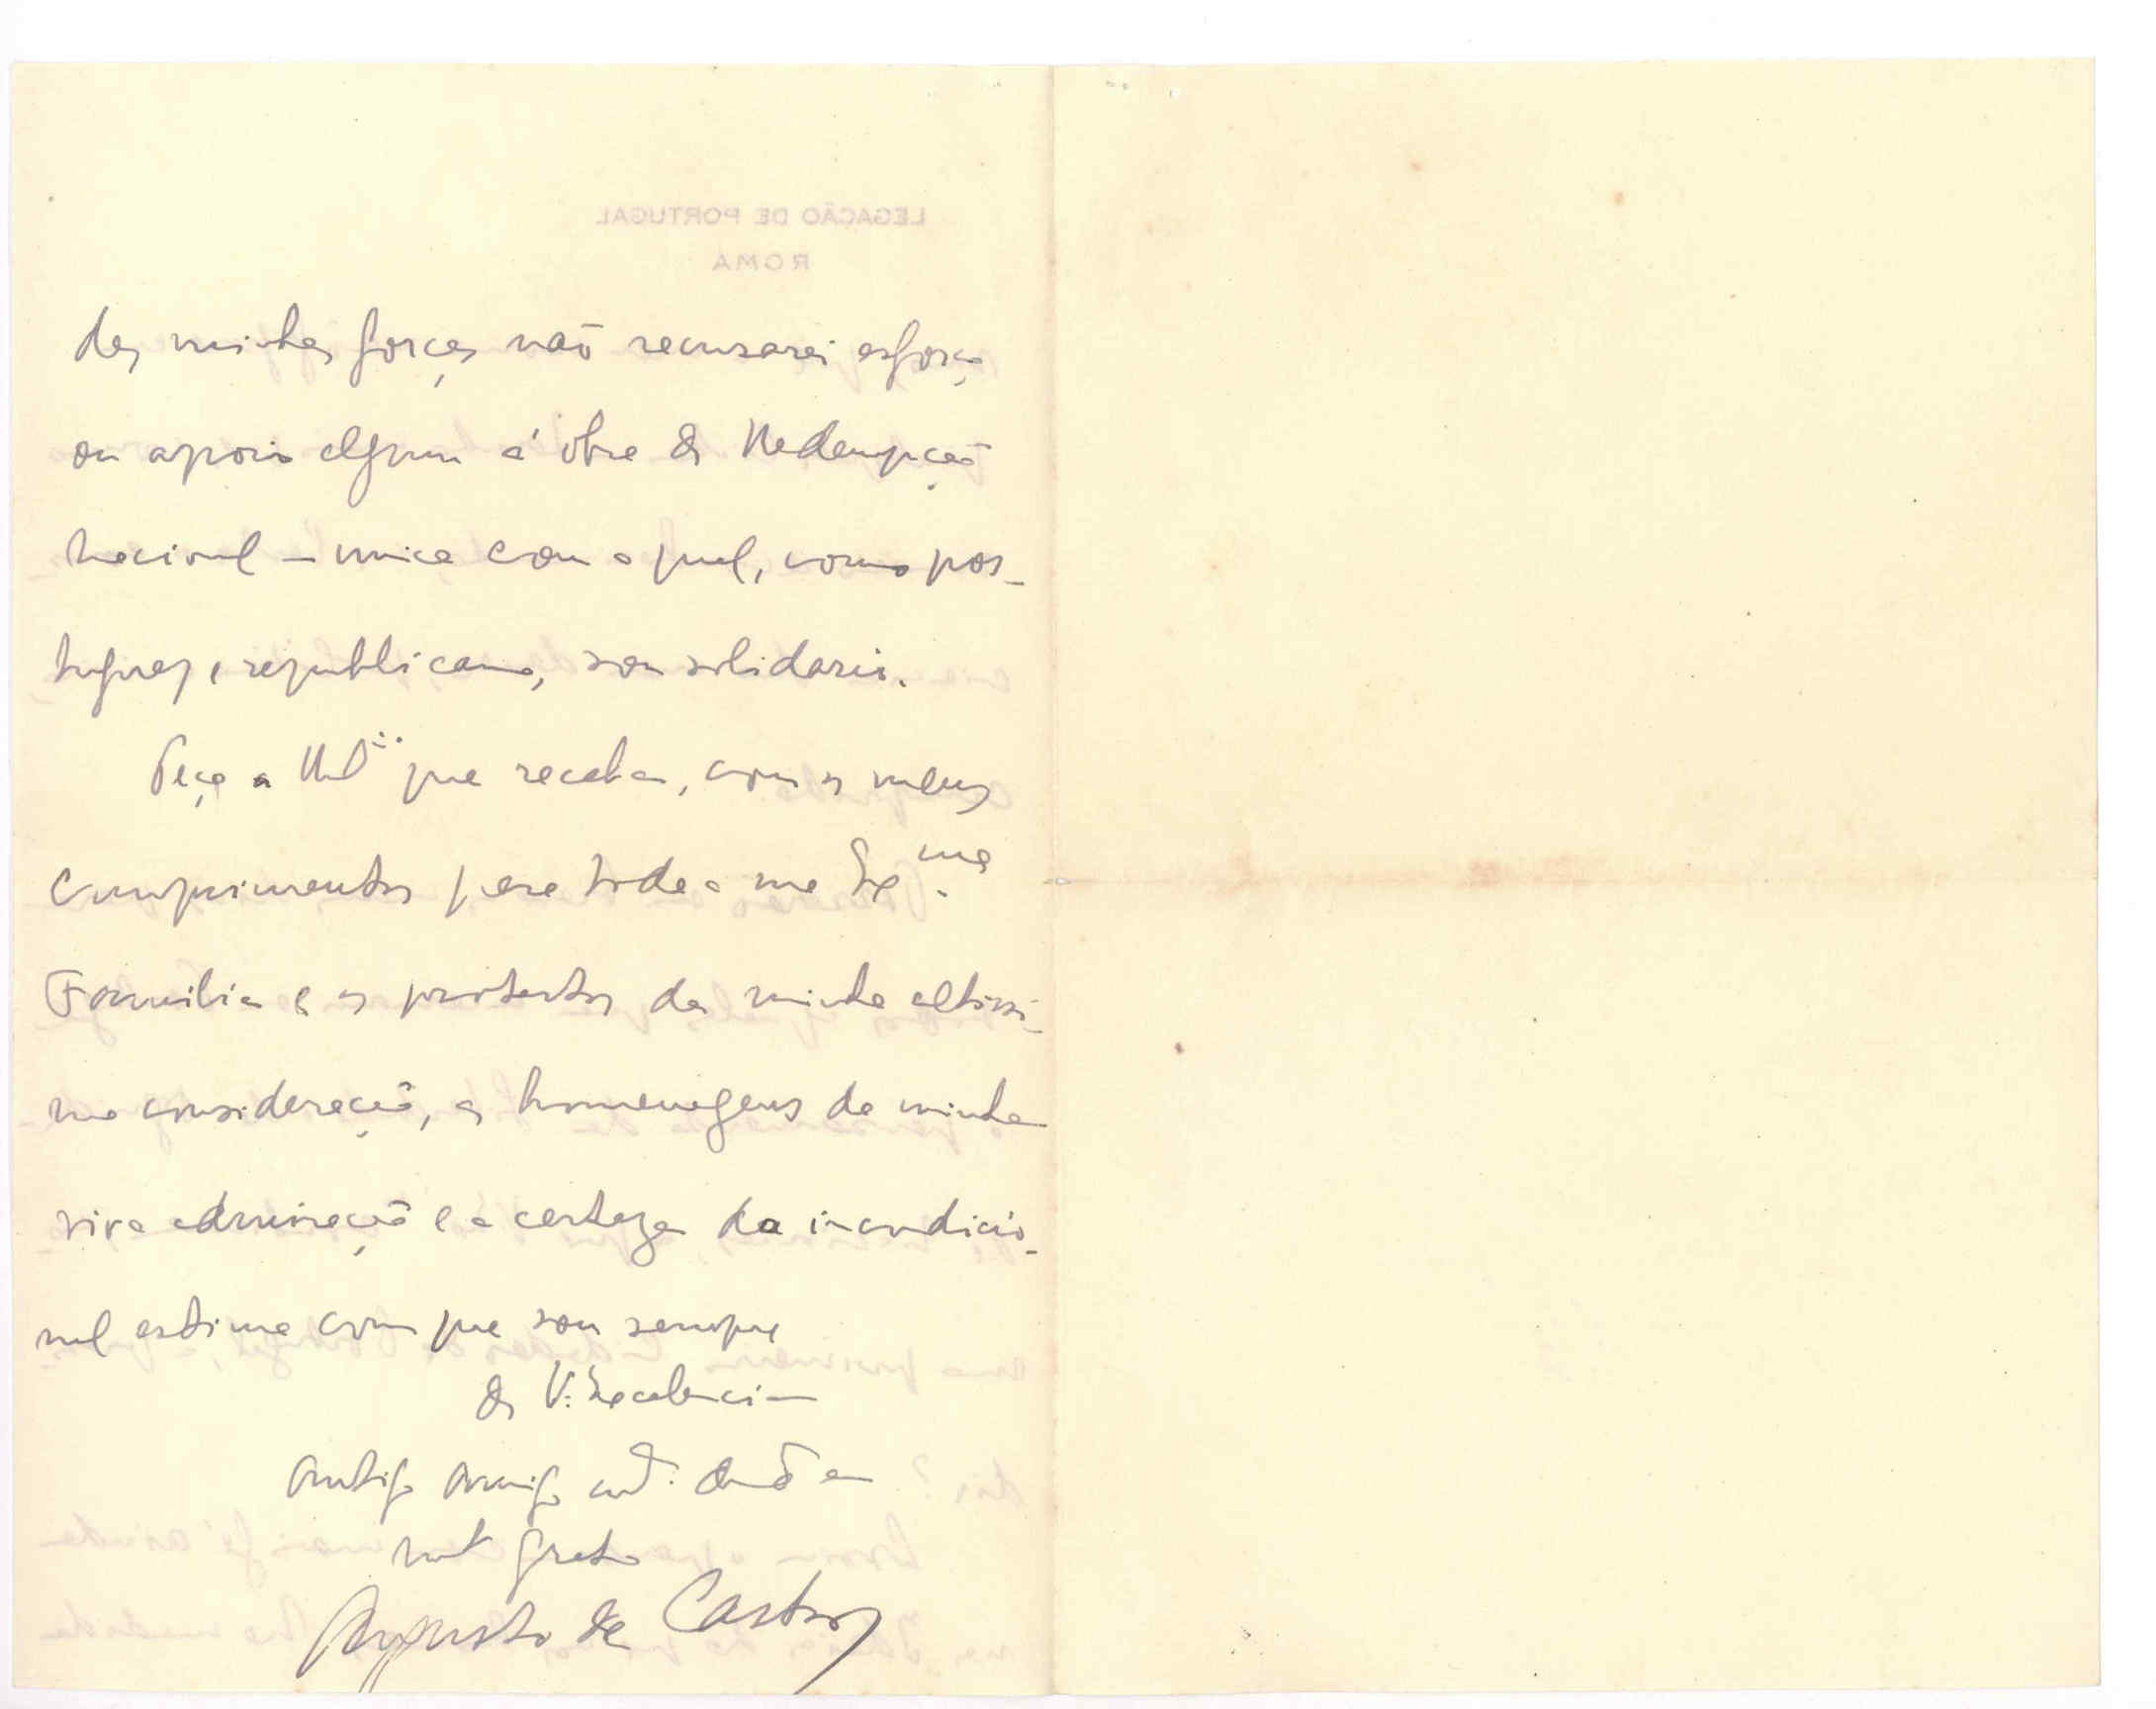 LEGAÇÃO DE PORTUGAL
ROMA
das minhas forças não recusarei esforço
ou apoio algum á obra de Redempção
Nacional — unica com a qual, como por-
tuguez e republicano, sou solidario.
Peço a que receba, com os meus
cumprimentos para toda a sua Ex.ma
Familia e os protestos da minha altissi-
ma consideração, as homenagens da minha
viva admiração e a certeza da incondicio-
nal estima com que sou sempre
de V. Excelencia
Antigo amigo
mt.º grato
Augusto de Castro